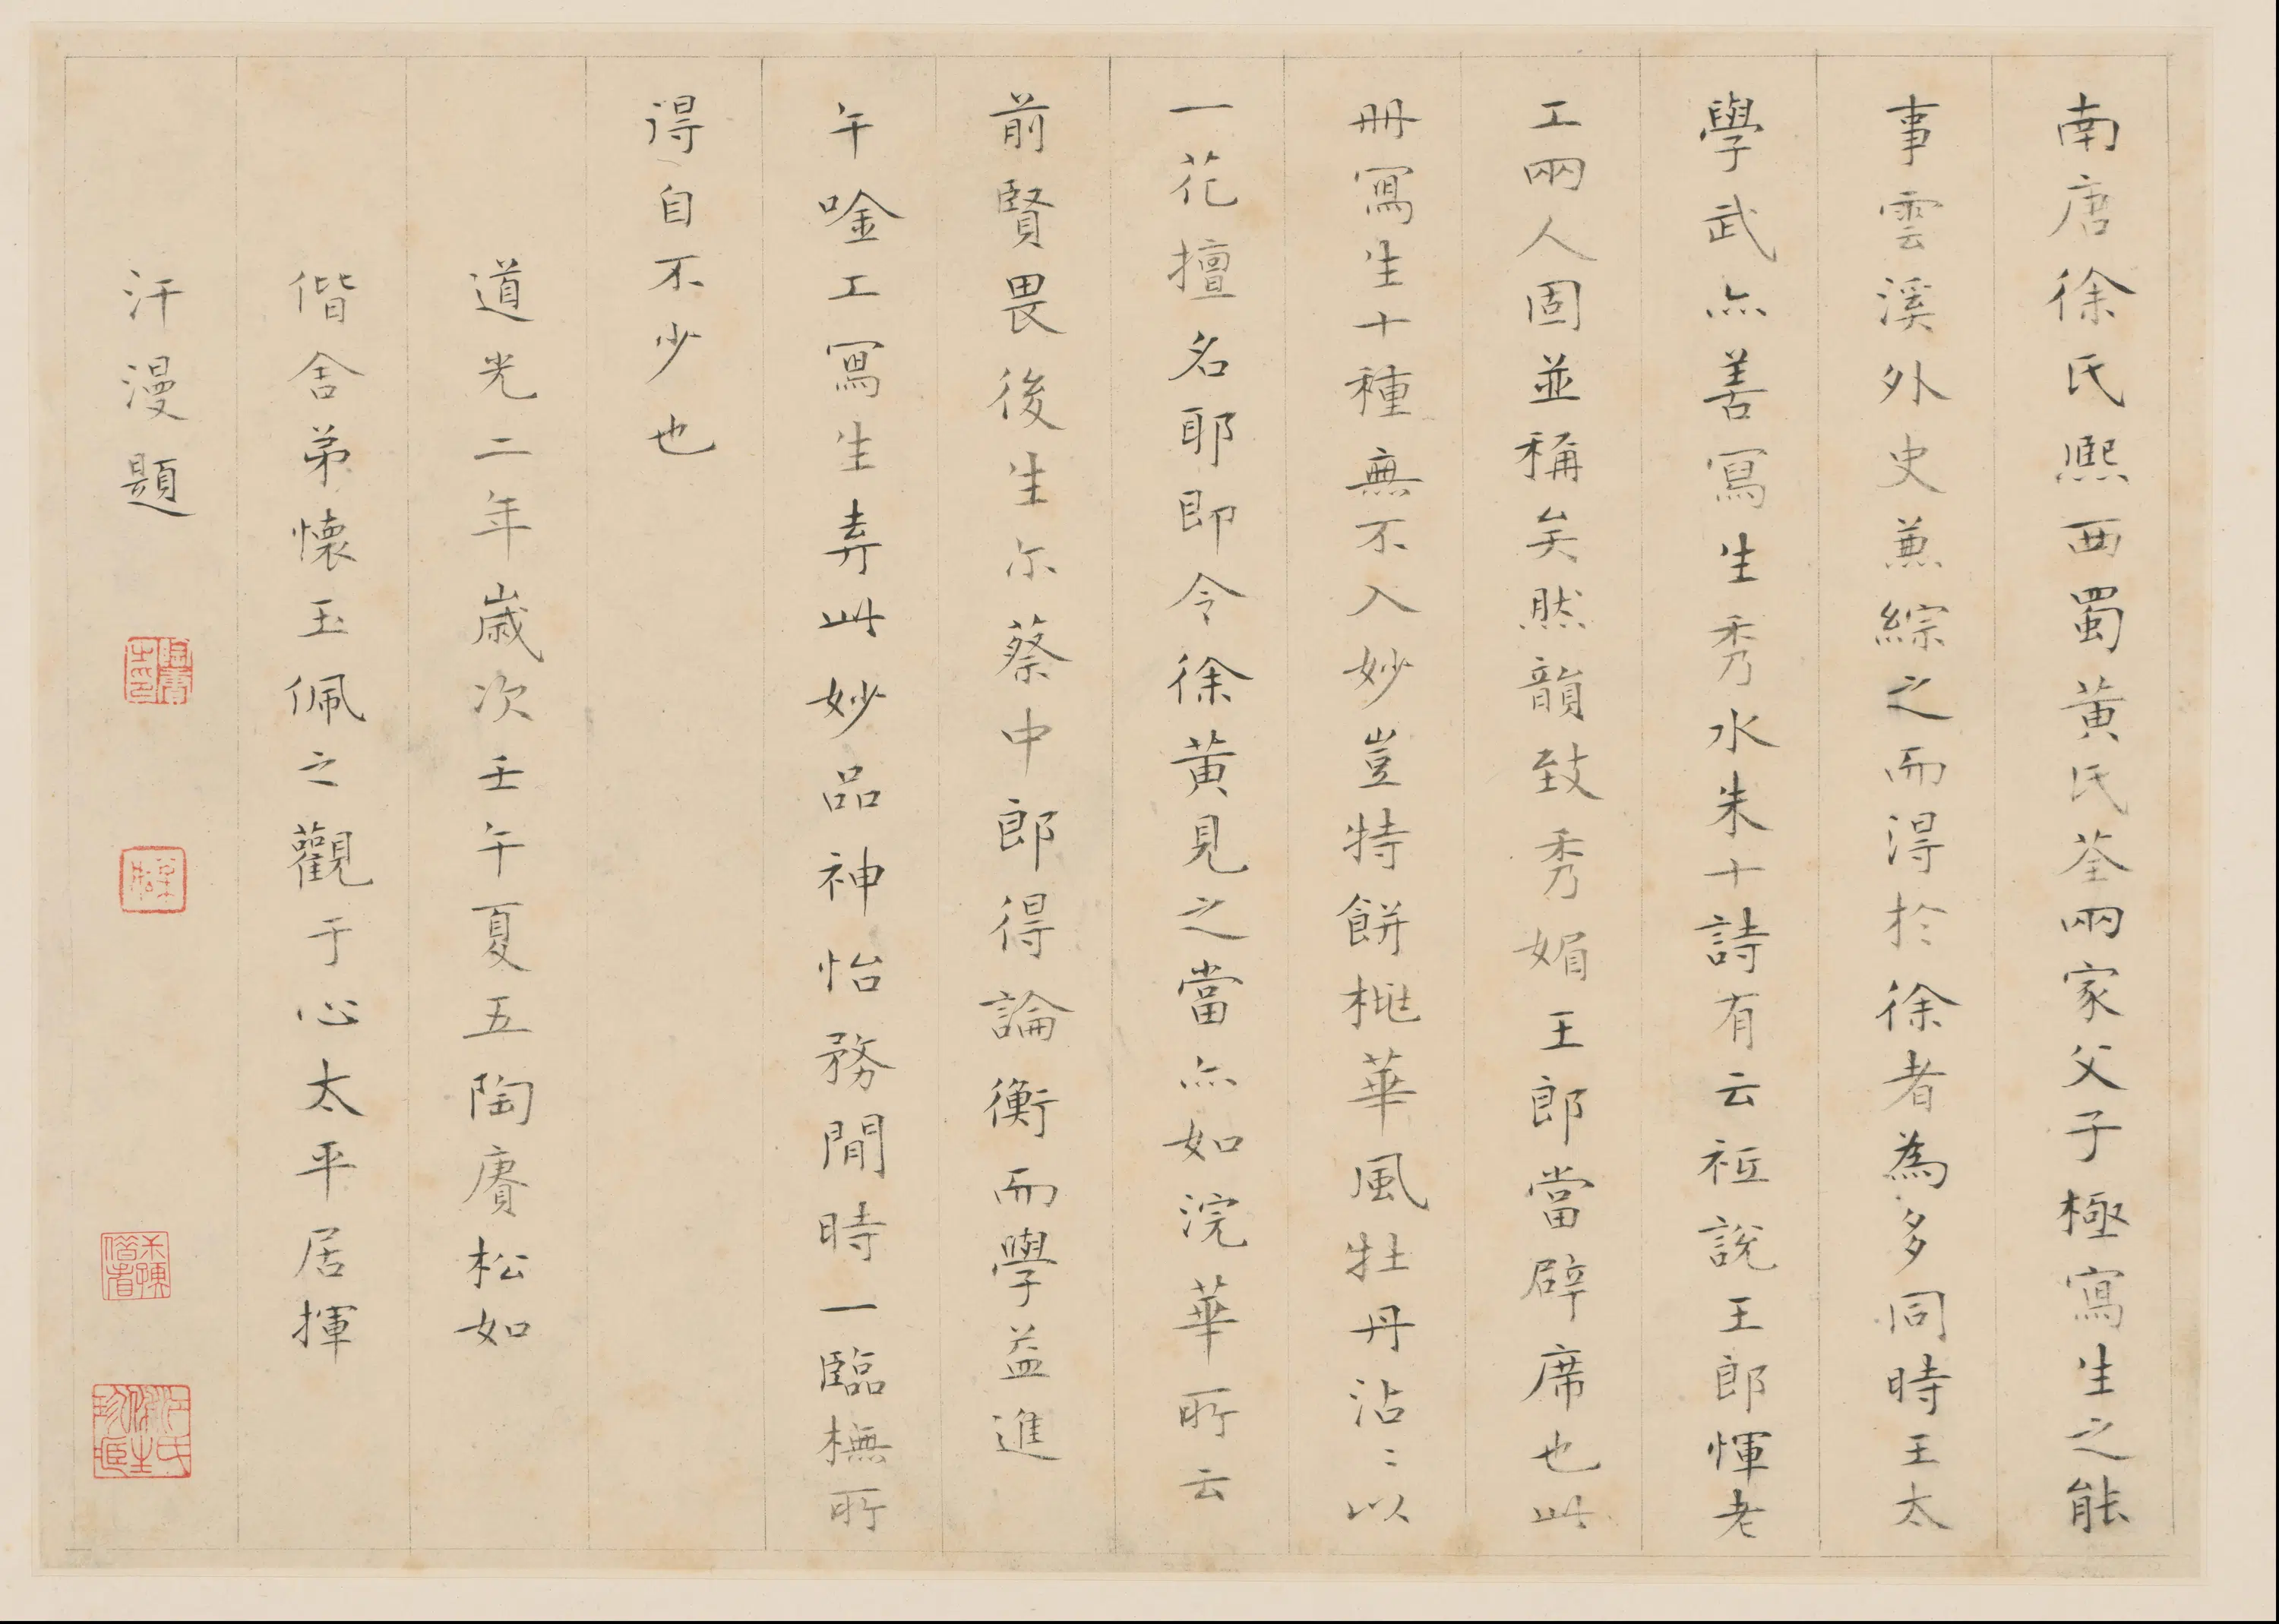 南唐徐氏熙西蜀黄氏荃兩家父子極寫生之能
事雲溪外史兼綜之而淂扵徐者為多同時王太
學武亦善寫生秀水朱十詩有云祗說王郎惲老
工兩人固並稱矣然韻致秀媚王郎當辟席也此
冊寫生十種無不入妙豈特餅桃華風牡丹沾〻以
一花擅名耶即令徐黄見之當亦如浣華所云
前賢畏後生尒蔡中郎得論衡而學益進
午唫工寫生弆此妙品神怡務閒時一臨橅所
淂自不少也
道光二年歲次壬午夏五陶賡松如
偕舍弟懷玉佩之觀于心太平居揮
汗漫題